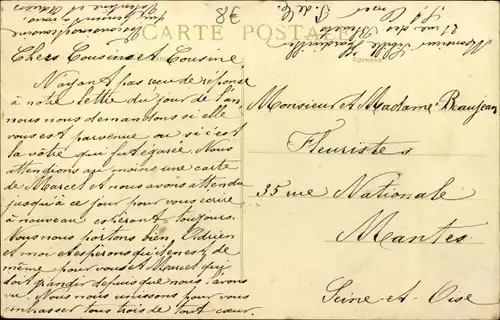 78
CARTE POSTALE
Chers Cousins et Cousine
N'ayant pas reçu de réponse
à notre lettre du jour de l'an,
nous nous demandons si elle
vous est parvenue ou si c'est
la vôtre qui fut égarée. Nous
attendions au moins une carte
de Marcel et nous avons attendu
jusqu'à ce jour pour vous écrire
à nouveau espérant toujours.
Nous nous portons bien Adrien
et moi et espérons qu'il en est de
même pour vous et Marcel qui
doit grandir depuis que nous l'avons
vu. Nous nous unissons pour vous
embrasser tous trois de tout cœur.
Monsieur et Madame Beaujean
Fleuristes
35 rue Nationale
Mantes
Seine-et-Oise
Monsieur
21 rue des
P. de C.